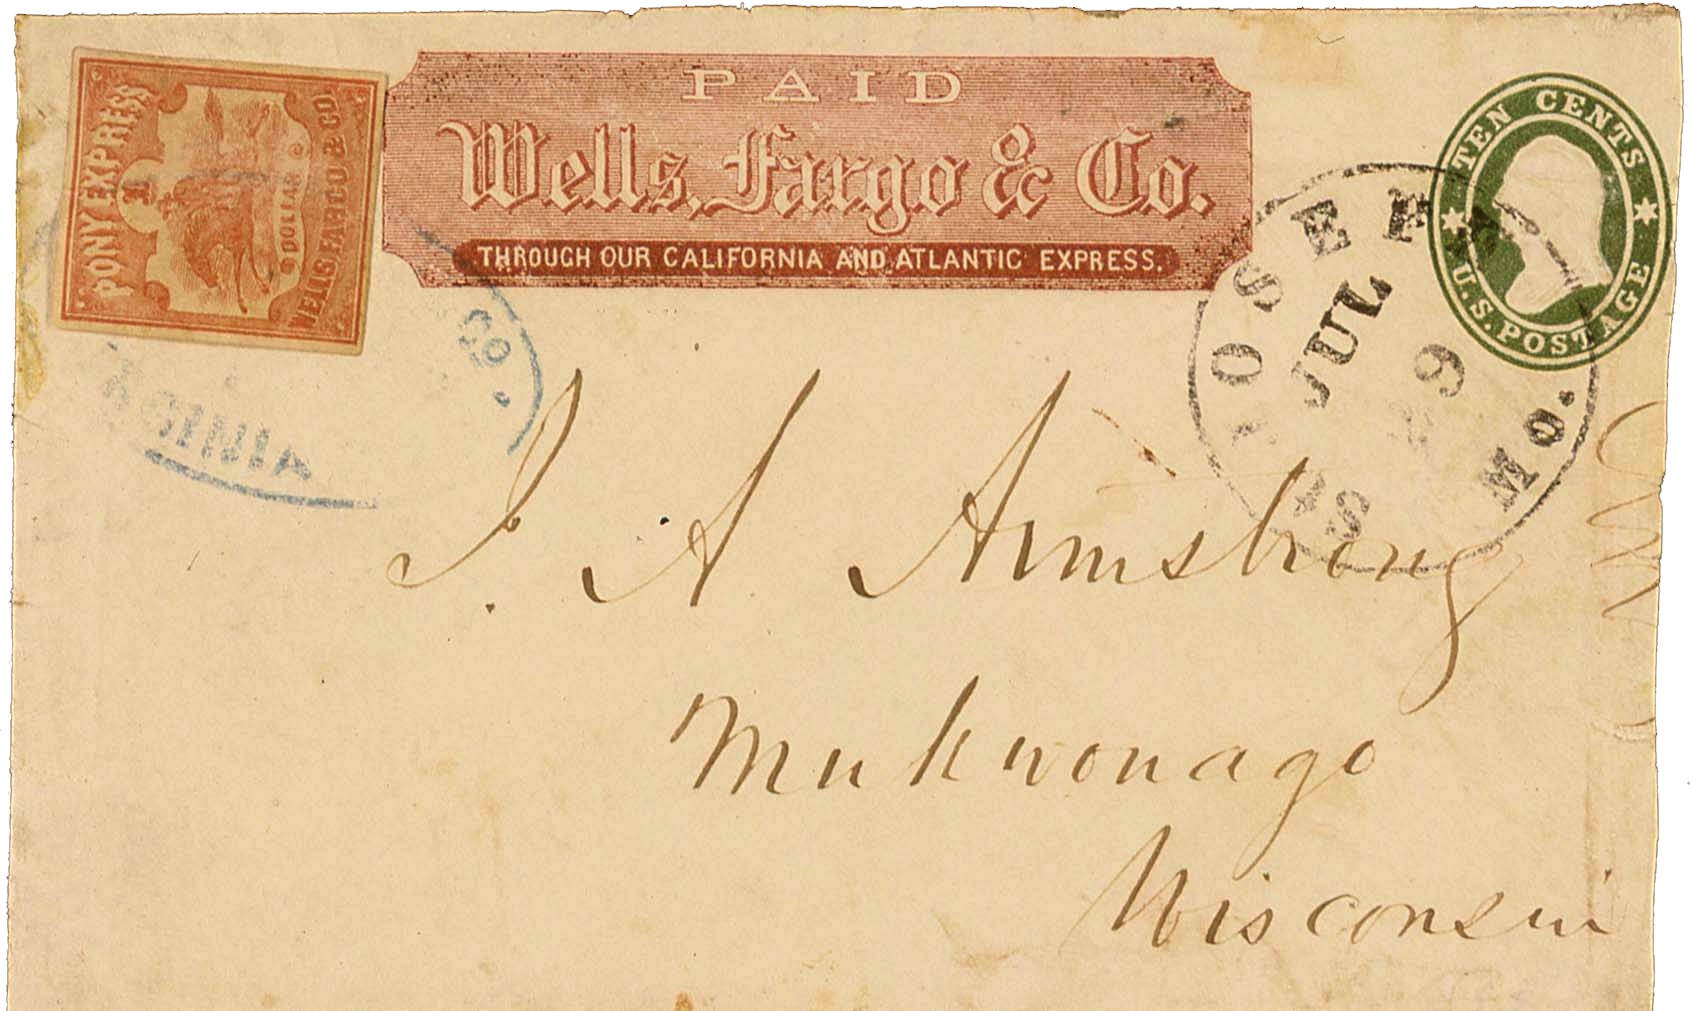 PONY EXPRESS
1
DOLLAR
WELLS, FARGO & CO.
PAID
Wells, Fargo & Co.
THROUGH OUR CALIFORNIA AND ATLANTIC EXPRESS.
TEN CENTS
U.S. POSTAGE
ST JOSEPH
JUL
29
Mo.
CO.
J. A Armstrong
Mukwonago
Wisconsin